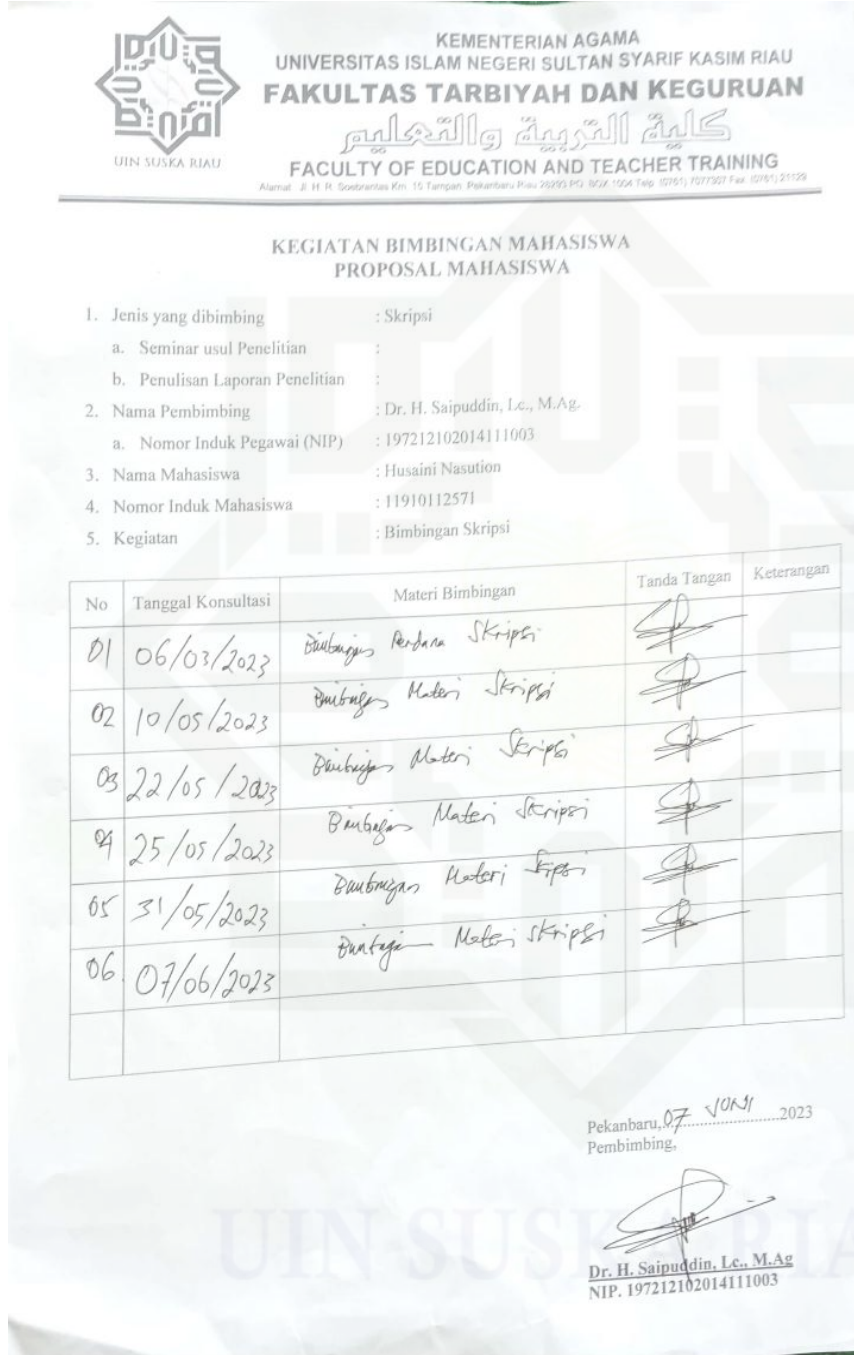 UIN SUSKA RIAU
KEMENTERIAN AGAMA
UNIVERSITAS ISLAM NEGERI SULTAN SYARIF KASIM RIAU
FAKULTAS TARBIYAH DAN KEGURUAN
كلية التربية والتعليم
FACULTY OF EDUCATION AND TEACHER TRAINING
Alamat : Jl. H. R. Soebrantas Km. 15 Tampan Pekanbaru Riau 28293 PO. BOX 1004 Telp. (0761) 7077307 Fax. (0761) 21129
KEGIATAN BIMBINGAN MAHASISWA
PROPOSAL MAHASISWA
1. Jenis yang dibimbing : Skripsi
a. Seminar usul Penelitian :
b. Penulisan Laporan Penelitian :
2. Nama Pembimbing : Dr. H. Saipuddin, Lc., M.Ag.
a. Nomor Induk Pegawai (NIP) : 197212102014111003
3. Nama Mahasiswa : Husaini Nasution
4. Nomor Induk Mahasiswa : 11910112571
5. Kegiatan : Bimbingan Skripsi
No Tanggal Konsultasi Materi Bimbingan Tanda Tangan Keterangan
01 06/03/2023 Bimbingan Perdana Skripsi
02 10/05/2023 Bimbingan Materi Skripsi
03 22/05/2023 Bimbingan Materi Skripsi
04 25/05/2023 Bimbingan Materi Skripsi
05 31/05/2023 Bimbingan Materi Skripsi
06 07/06/2023 Bimbingan Materi Skripsi
Pekanbaru, 07 JUNI 2023
Pembimbing,
Dr. H. Saipuddin, Lc., M.Ag
NIP. 197212102014111003
UIN SUSKA RIA